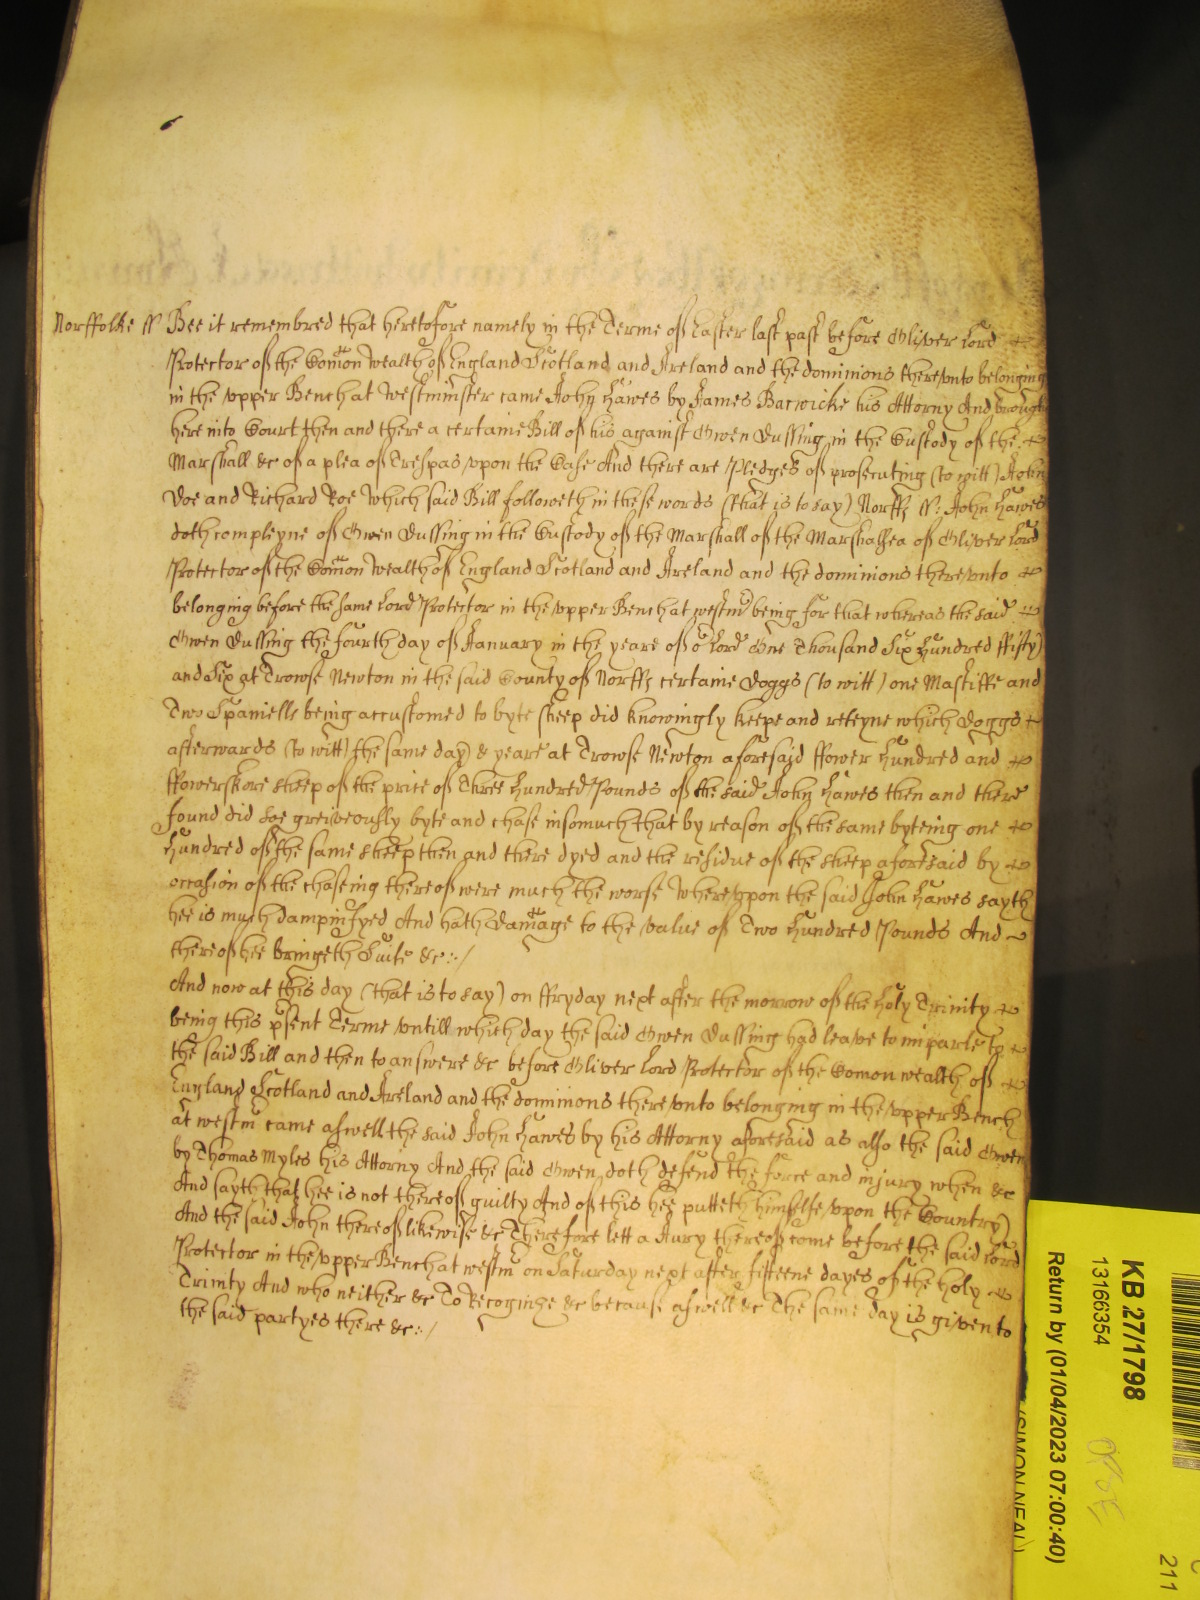 Norffolke ss Bee it remembred that heretofore namely in the Terme of Easter last past before Oliver Lord
Protector of the Comon wealth of England Scotland and Ireland and the dominions therevnto belonging
in the vpper Bench at Westminster came John Hawes by James Barwicke his Attorny And brought
here into Court then and there a certaine Bill of his against Owen Dussing in the Custody of the
Marshall &c of a plea of Trespas vpon the Case And there are Pledges of prosecuting (to witt) John
Doe and Richard Roe Which said Bill followeth in these words (that is to say) Norff ss: John Hawes
doth compleyne of Owen Dussing in the Custody of the Marshall of the Marshalsea of Oliver Lord
Protector of the Comon wealth of England Scotland and Ireland and the dominions therevnto
belonging before the same Lord Protector in the vpper Bench at westm being for that whereas the said
Owen Dussing the fourth day of January in the yeare of o Lord One Thousand Six hundred ffifty
and Six at Trowse Newton in the said County of Norff certaine Doggs (to witt) one Mastiffe and
Two Spaniells being accustomed to byte sheep did knowingly keepe and reteyne which Doggs
afterwards (to witt) the same day & yeare at Trowse Newton aforesaid ffower hundred and
ffowerskore sheep of the price of Three hundred Pounds of the said John Hawes then and there
found did soe greiveously byte and chase insomuch that by reason of the same byteing one
hundred of the same sheep then and there dyed and the residue of the sheep aforesaid by
occasion of the chaseing thereof were much the worse Wherevpon the said John Hawes sayth
hee is much dampnifyed And hath Damage to the value of Two hundred Pounds And
thereof hee bringeth Suite &c:/
And now at this day (that is to say) on ffryday next after the morrow of the holy Trinity
being this psent Terme vntill which day the said Owen Dussing had leave to imparle to
the said Bill and then to answere &c before Oliver Lord Protector of the Comon wealth of
England Scotland and Ireland and the dominions therevnto belonging in the vpper Bench
at westm came aswell the said John Hawes by his Attorny aforesaid as also the said Owen
by Thomas Myles his Attorny And the said Owen doth defend the force and injury when &c
And sayth that hee is not thereof guilty And of this hee putteth himselfe vpon the Country
And the said John thereof likewise &c Therefore lett a Jury thereof come before the said Lord
Protector in the vpper Bench at westm on Saturday next after fifteene dayes of the holy
Trinity And who neither &c To Recognize &c because aswell &c The same day is given to
the said partyes there &c:/
KB 27/1798
13166354
Return by (01/04/2023 07:00:40)
(SIMON NEAL)
211